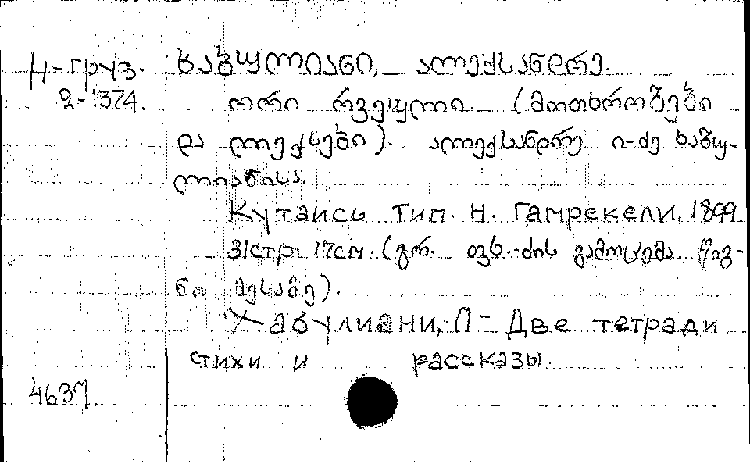 Н-груз. ხაბულიანი, ალექსანდრე.
2-374. ორი რვეული. (მოთხრობები
და ლექსები). ალექსანდრე ი-ძე ხაბუ-
ლიანისა.
Кутаись Тип. Н. Гамрекели, 1899
31стр. 17см. (გრ. გამოცემა წიგ-
ნი მესამე).
Хабулиани, Л- Две тетради
стихи и рассказы.
4637